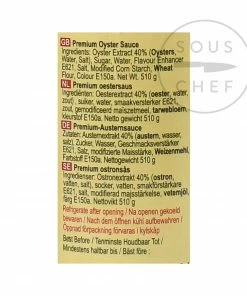 SOUS
CHEF
GB Premium Oyster Sauce
Ingredients: Oyster Extract 40% (Oysters,
Water, Salt), Sugar, Water, Flavour Enhancer
E621, Salt, Modified Corn Starch, Wheat
Flour, Colour E150a. Net Wt. 510 g
NL Premium oestersaus
Ingrediënten: Oesterextract 40% (oester, water,
zout), suiker, water, smaakversterker E621,
zout, gemodificeerd maïszetmeel, tarwebloem,
kleurstof E150a. Netto gewicht 510 g
DE Premium-Austernsauce
Zutaten: Austernextrakt 40% (austern, wasser,
salz), Zucker, Wasser, Geschmacksverstärker
E621, Salz, modifizierte Maisstärke, Weizenmehl,
Farbstoff E150a. Nettogewicht 510 g
SE Premium ostronsås
Ingredienser: Ostronextrakt 40% (ostron,
vatten, salt), socker, vatten, smakförstärkare
E621, salt, modifierad majsstärkelse, vetemjöl,
färg E150a. Nettovikt 510 g
Refrigerate after opening / Na openen gekoeld
bewaren / Nach dem öffnen kühl aufbewahren /
Öppnad förpackning förvaras i kylskåp
Best Before / Tenminste Houdbaar Tot /
Mindestens haltbar bis / Bäst före :